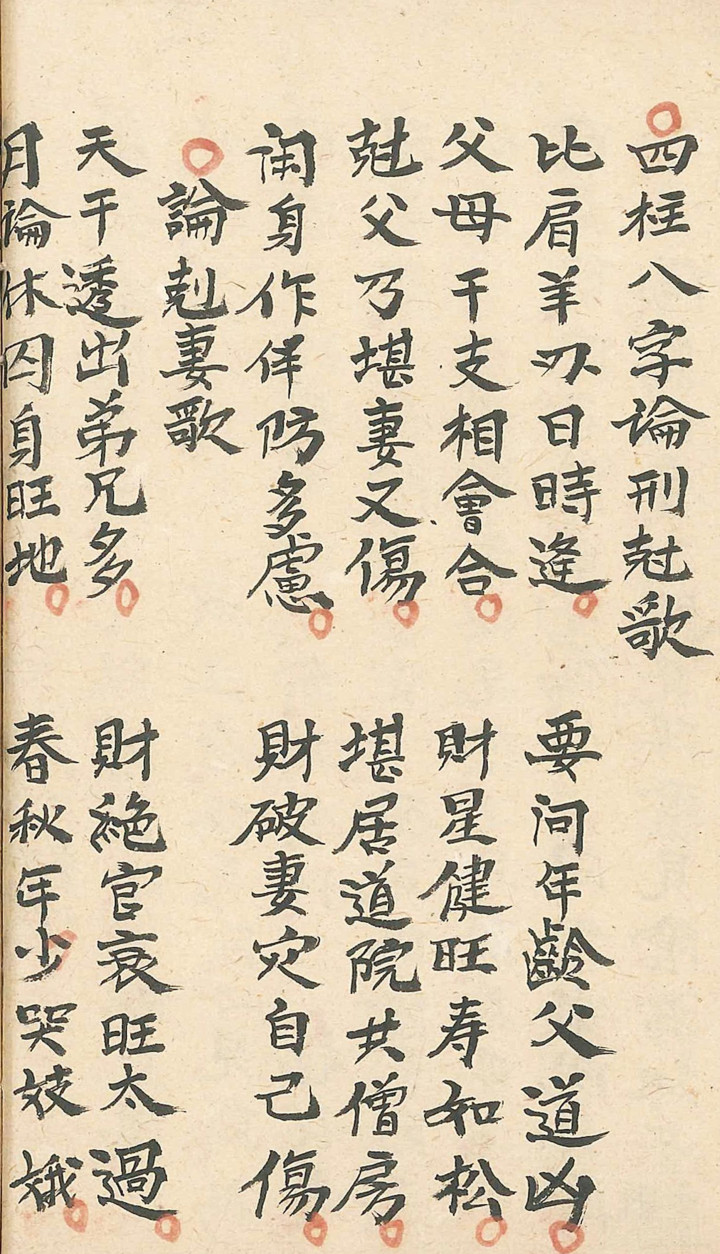 四柱八字論刑尅歌
比肩羊刃日時逢　要问年齡父道凶
父母干支相會合　財星健旺寿如松
尅父乃堪妻又傷　堪居道院共僧房
闲身作伴防多慮　財破妻灾自己傷
論剋妻歌
天干透出弟兄多　財絶官衰旺太過
月論休囚身旺地　春秋年少哭妓娥